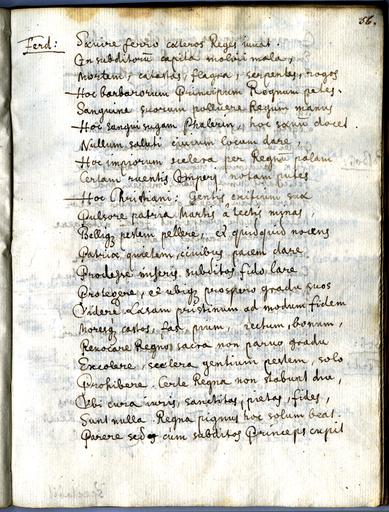 56.
Ferd: Sævire ferro cæteros Reges iuvat.
In subditorũ capita moliri mala,
Mortem, catastas, flagra, serpentes, rogos
Hoc barbarorum Principum Regnum petes.
Sanguine suorum polluere Regum manus
Hoc sangui sugam Phalerin, hoc sævũ docet
Nullum saluti civium locum dare,
Hoc impiorum scelera per Regna palam
Certam ruentis notam putes
Hoc Christianæ Gentis exitium
Pulsare patria Martis a tectis minas,
Belliq pestem pellere, et quidquid nocens
Patriæ quietem, civibus pacem dare
Prodesse miseris subditos fido lare
Protegere, et ubiq prospero gradu suos
Videre. Lasam pristinum ad modum fidem
Moresq castos, fas, pium, rectum, bonum,
Revocare Regnos sacra non paruo gradu
Excolere, scelera gentium pestem, solo
Prohibere. Certe Regna non stabunt diu,
Ubi cura iuris, sanctitas, pietas, fides,
Sunt nulla. Regna pignus hoc solum beat.
Parere sed cum subditos Princeps cupit